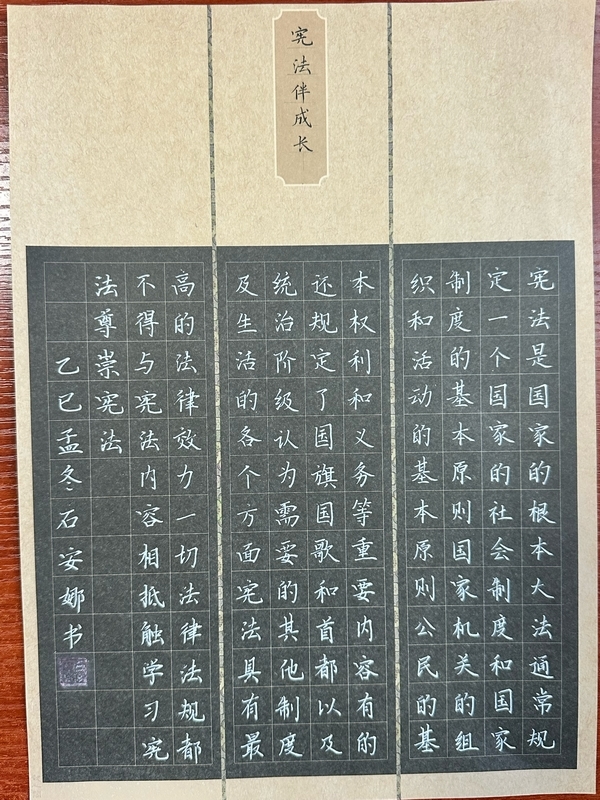 宪法伴成长
宪法是国家的根本大法通常规
定一个国家的社会制度和国家
制度的基本原则国家机关的组
织和活动的基本原则公民的基
本权利和义务等重要内容有的
还规定了国旗国歌和首都以及
统治阶级认为需要的其他制度
及生活的各个方面宪法具有最
高的法律效力一切法律法规都
不得与宪法内容相抵触学习宪
法尊崇宪法
乙巳孟冬石安娜书